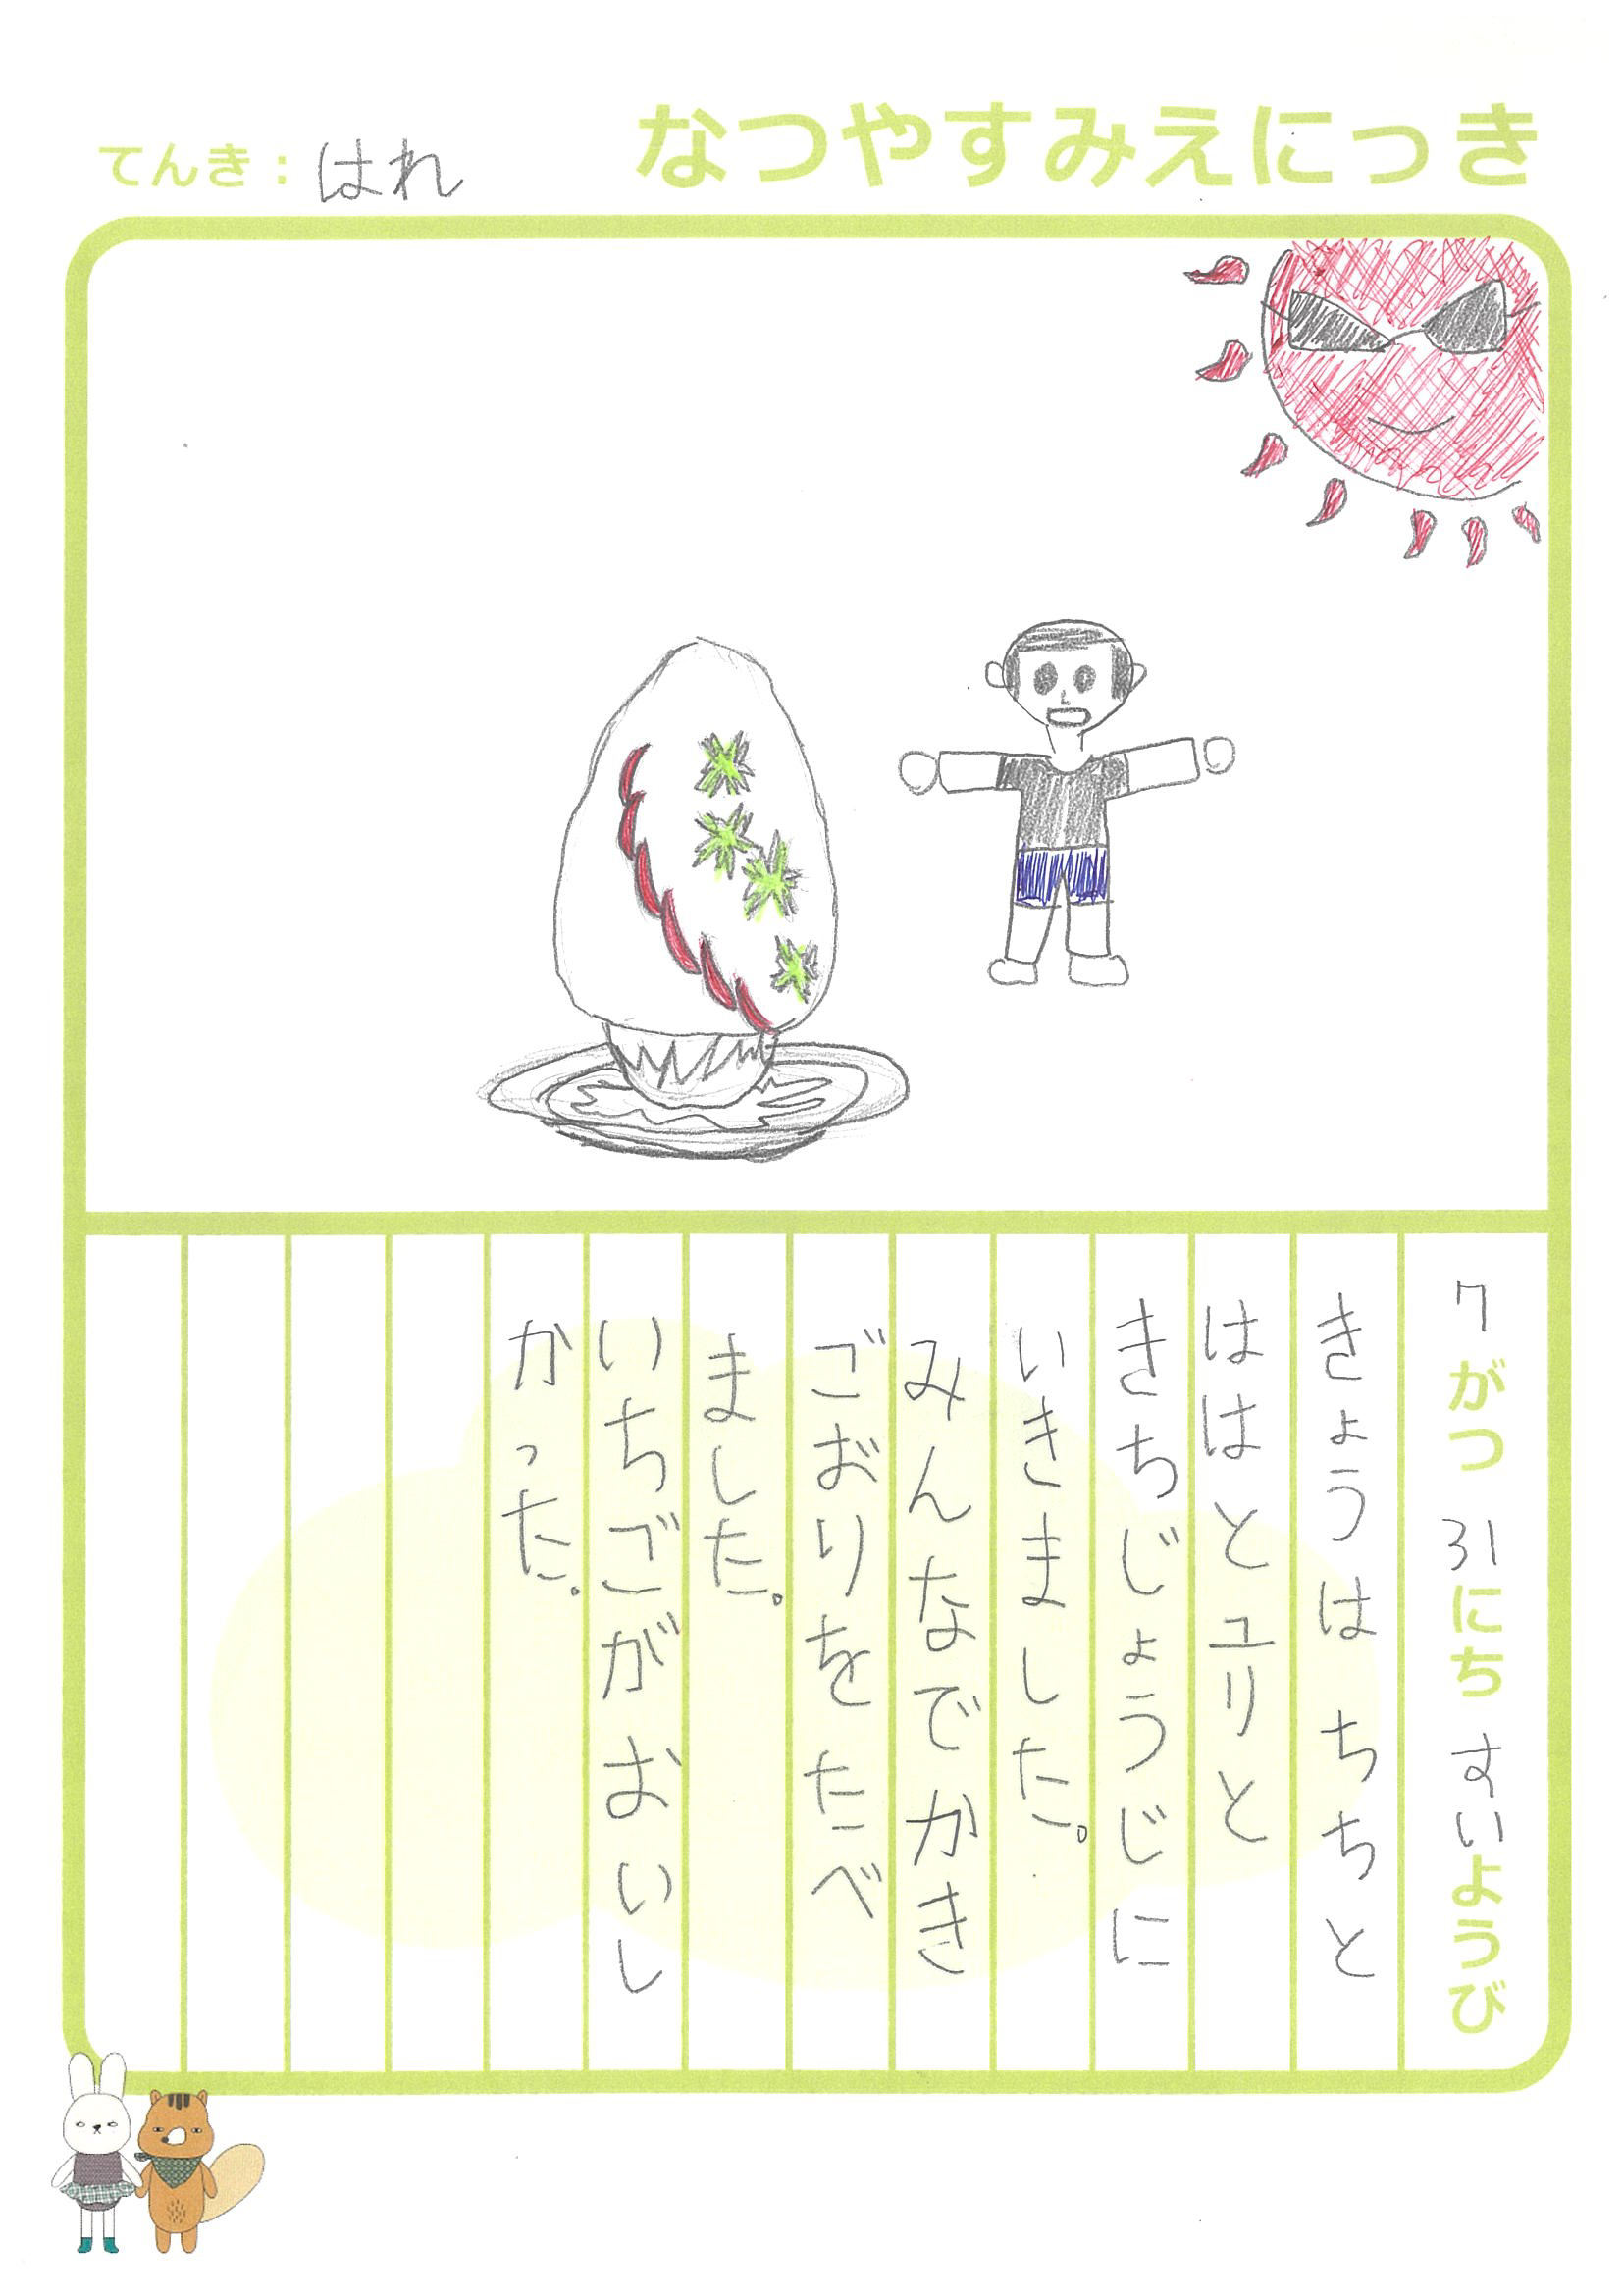 なつやすみえにっき
てんき：はれ
7がつ 31にち すいようび
きょうは ちちと
ははと ユリと
きちじょうじに
いきました。
みんなでかき
ごおりを たべ
ました。
いちごが おいし
かった。